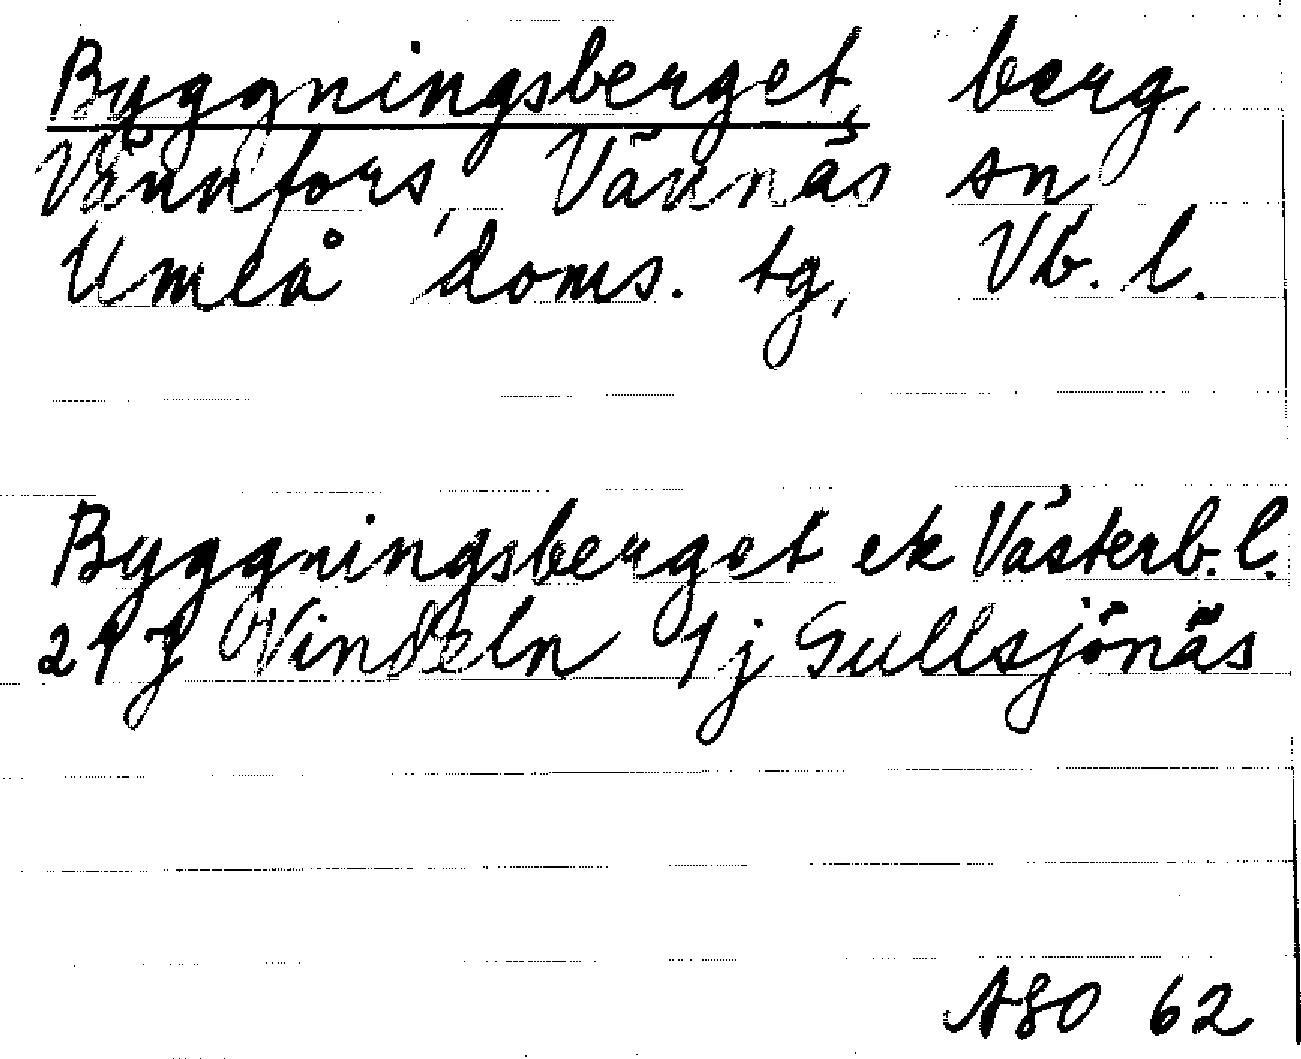 Byggningsberget, berg,
Vännfors, Vännäs sn
Umeå doms. tg, Vb. l.
Byggningsberget ek Västerb. l.
21 J Vindeln 1j Gullsjönäs
ASO 62